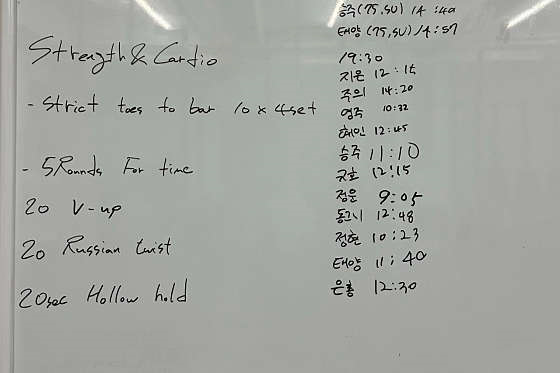 Strength & Cardio
- Strict toes to bar 10 x 4set
- 5Rounds For time
20 V-up
20 Russian twist
20sec Hollow hold
승주(75,SU) 14:49
태양(75,SU) 14:57
19:30
지은 12:15
주의 14:20
영주 10:32
혜인 12:45
승주 11:10
12:15
정운 9:05
12:48
정현 10:23
태양 11:40
은총 12:30